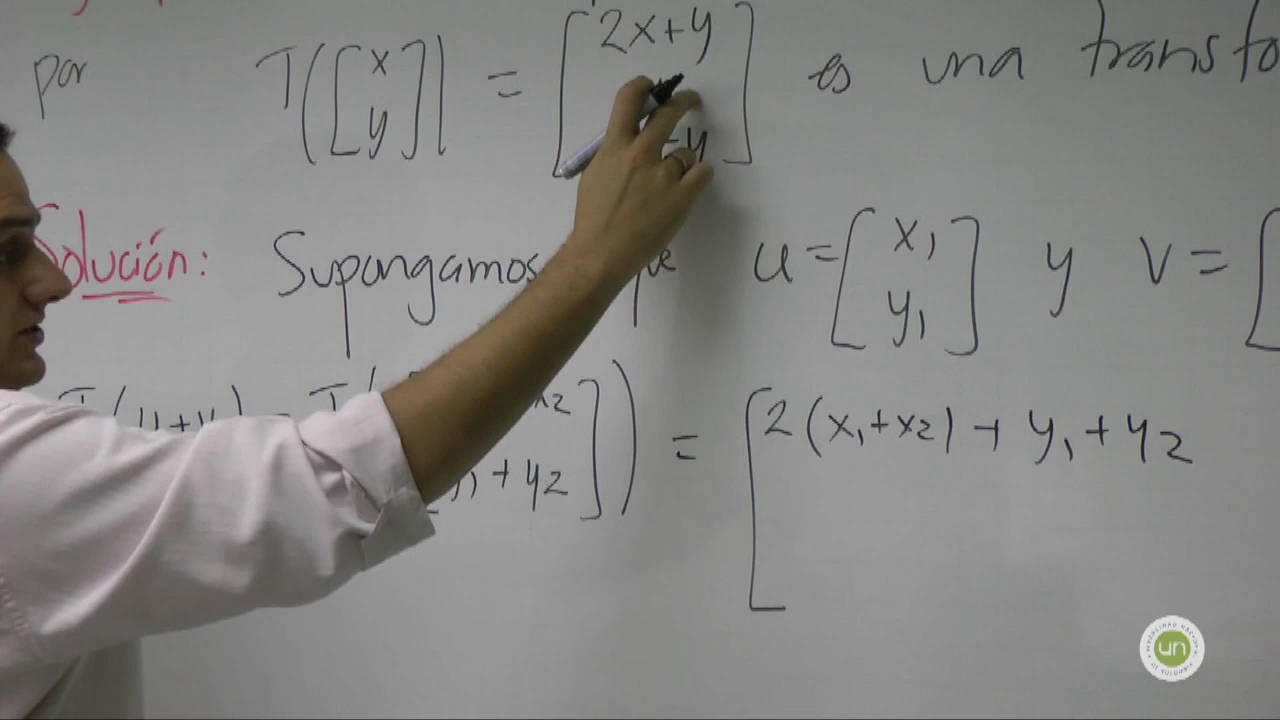 por T([x y]) = [2x+y -y] es una transfo
Solución: Supongamos que u = [x₁ y₁] y v = [
T(u+v) = T([ x₂ y₁+y₂]) = [2(x₁+x₂) + y₁+y₂
un